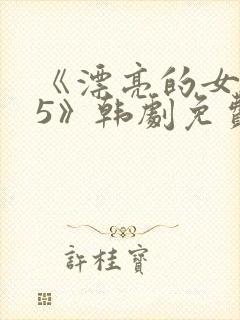 《漂亮的女
5》韩劇免費
許桂寶